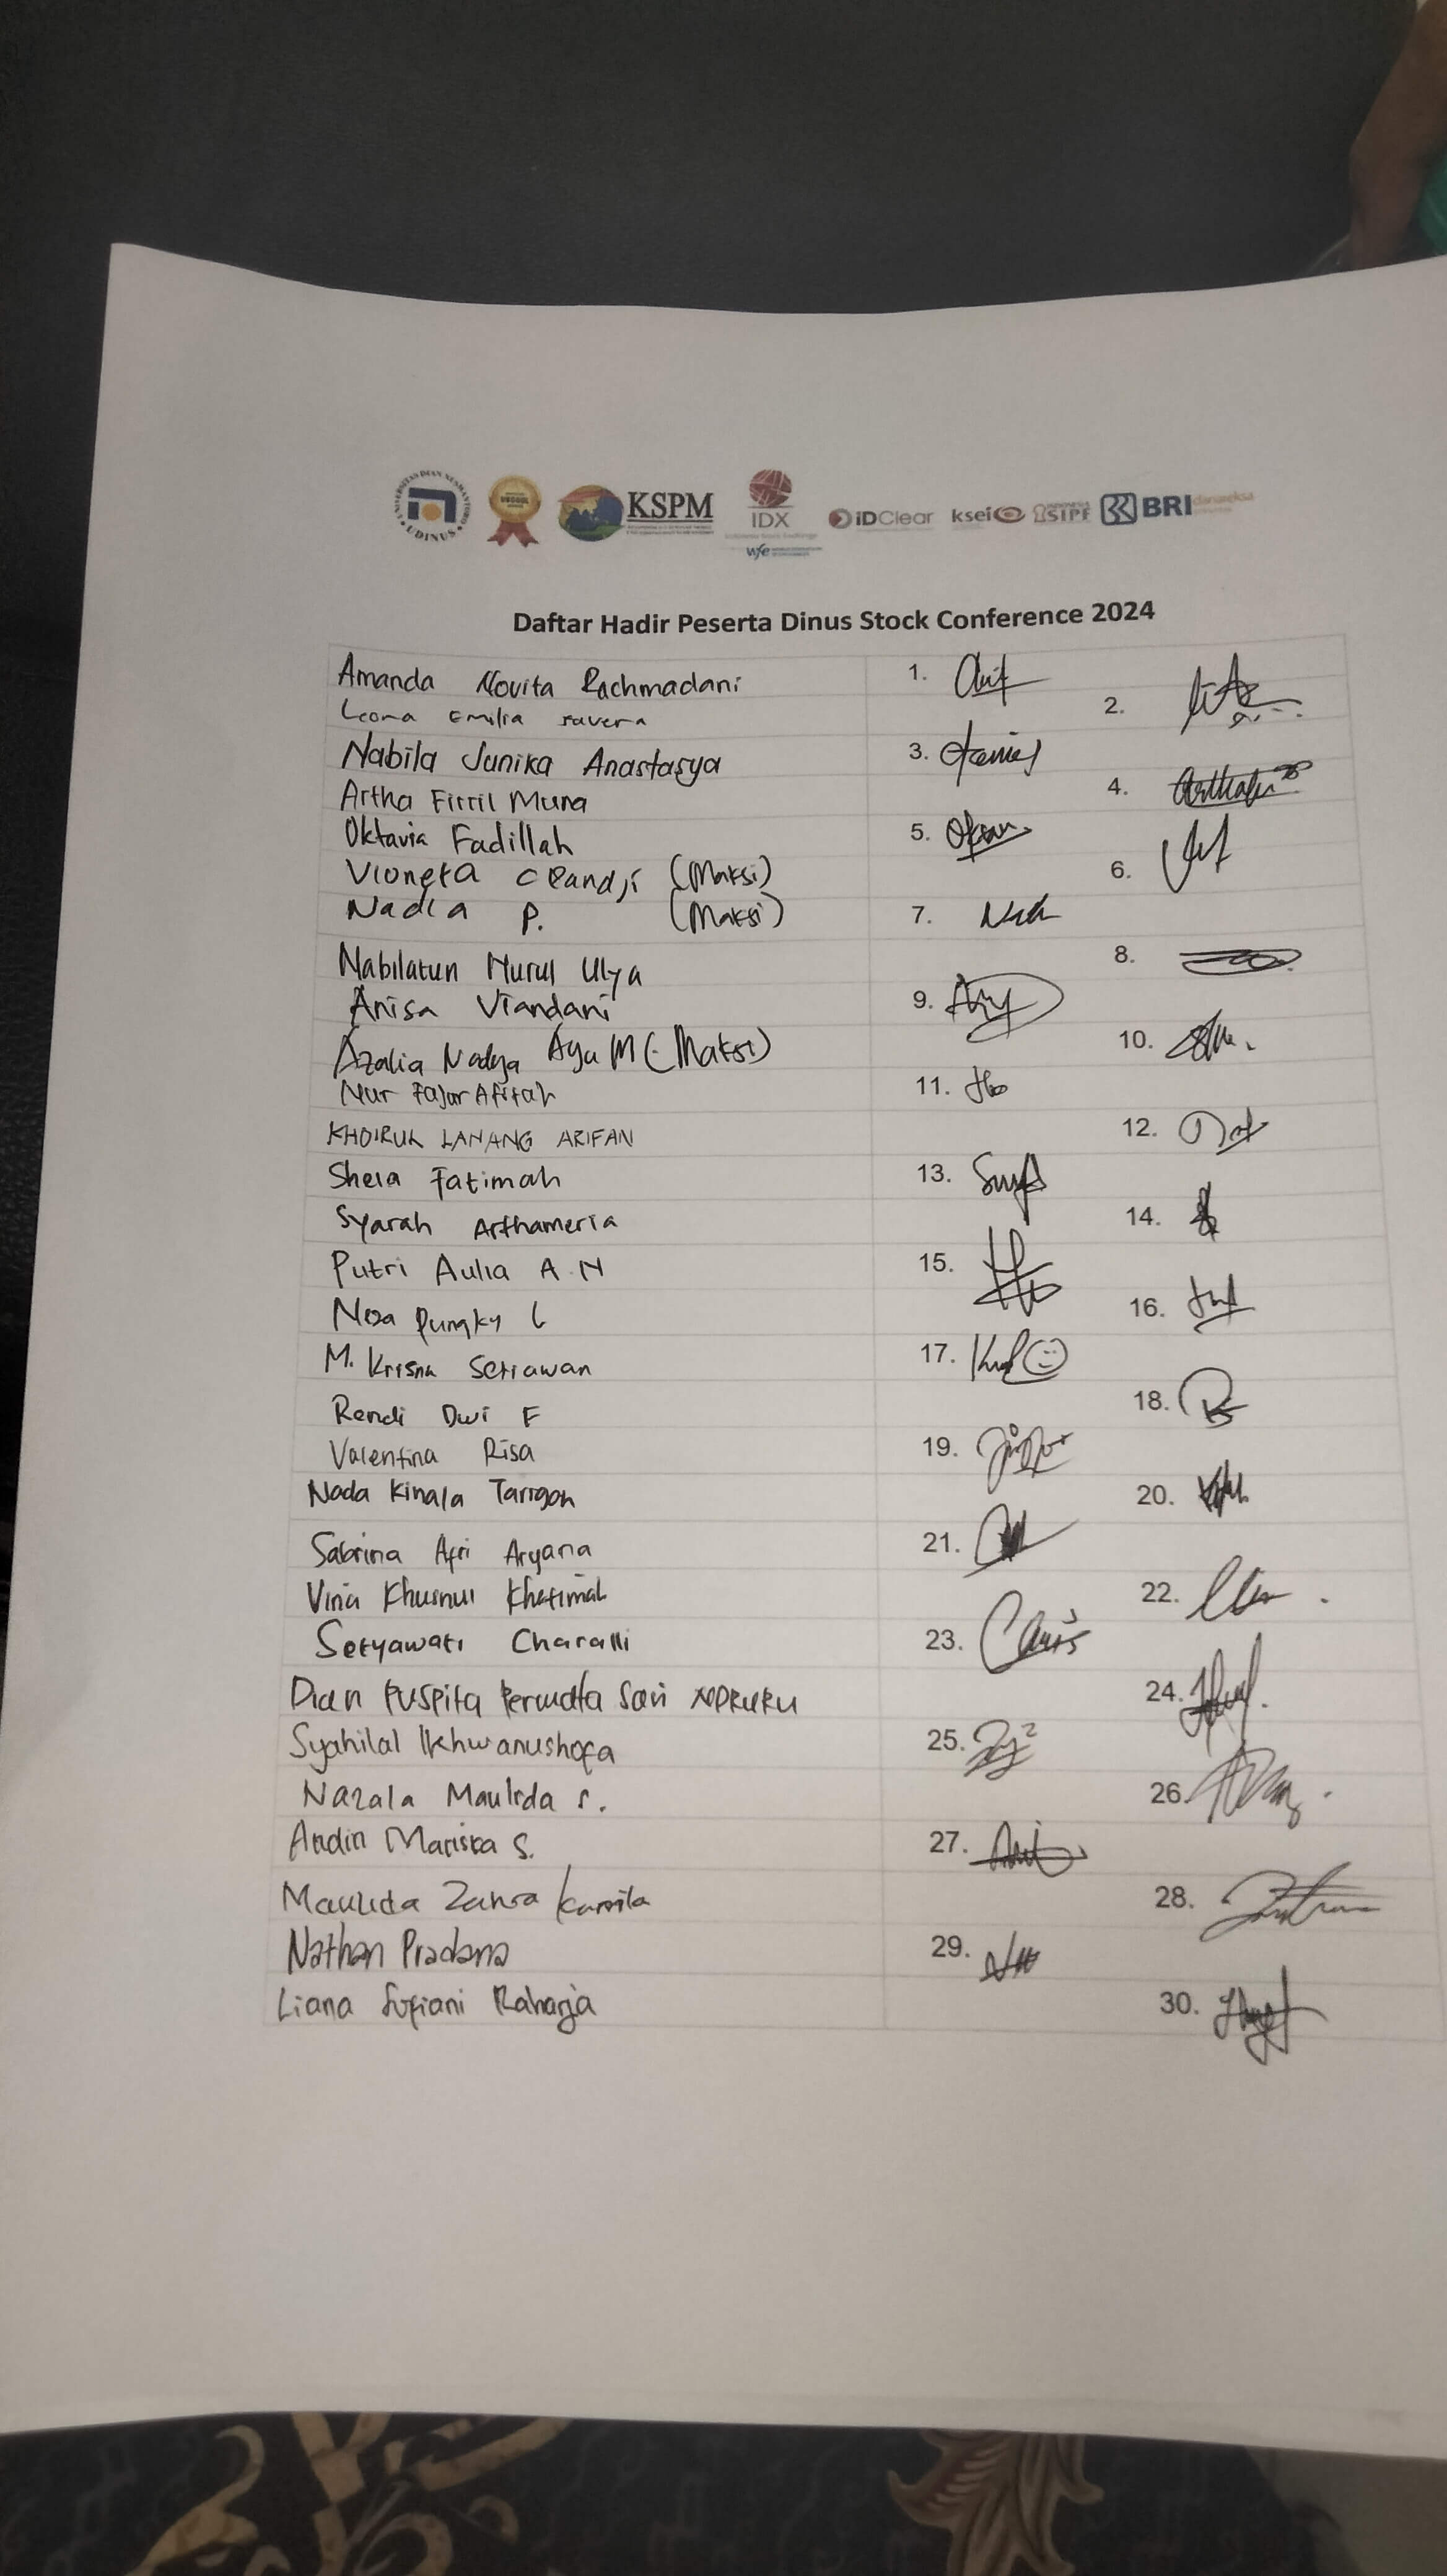 UNIVERSITAS DIAN NUSWANTORO
UDINUS
KSPM
IDX
wfe
iDClear
ksei
SIPF
BRI danareksa
Daftar Hadir Peserta Dinus Stock Conference 2024
Amanda Novita Rachmadani 1.
Leona Emilia 2.
Nabila Junika Anastasya 3.
Artha Firril Muna 4.
Oktavia Fadillah 5.
Vioneta (Maksi) 6.
Nadia P. (Maksi) 7.
Nabilatun Nurul Ulya 8.
Anisa Viandani 9.
Azalia Nadya Ayu M (Maksi) 10.
Nur Fajar Afifah 11.
KHOIRUL LANANG ARIFAN 12.
Shela Fatimah 13.
Syarah Arthameria 14.
Putri Aulia A.N 15.
Pungky L 16.
M. Krisna Setiawan 17.
Rendi Dwi F 18.
Valentina Risa 19.
Nada Kinala Tarigan 20.
Sabrina Apri Aryana 21.
Vina Khusnul Khotimah 22.
Setyawati Charalli 23.
Dian Puspita Permata Sari 24.
Syahilal Ikhwanushofa 25.
Nazala Maulida S. 26.
Andin Mariska S. 27.
Maulida Zahra Kamila 28.
Nathan Pradana 29.
Liana Sufiani Raharja 30.